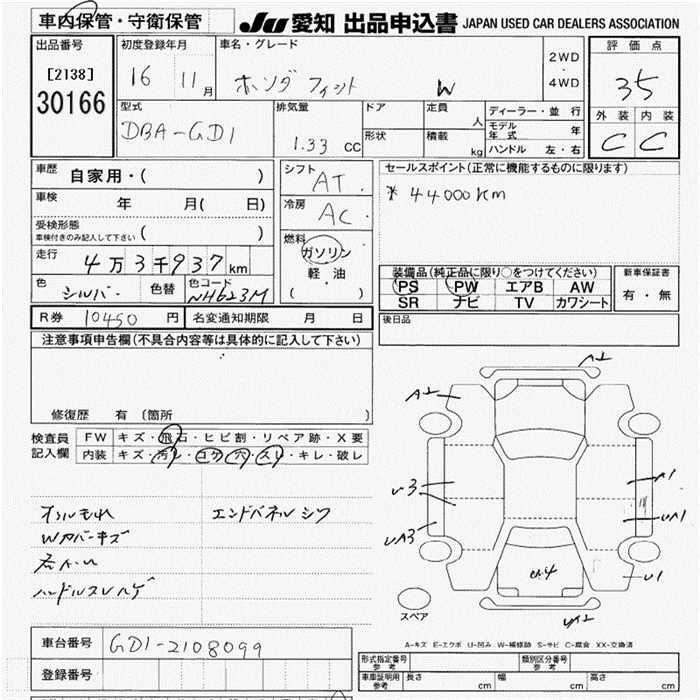 車内保管・守衛保管
JU 愛知 出品申込書 JAPAN USED CAR DEALERS ASSOCIATION
出品番号
[2138]
30166
初度登録年月
16 11月
車名・グレード
ホンダ フィット W
2WD
・
4WD
評価点
35
外装 内装
C C
型式
DBA-GD1
排気量
1.33 CC
ドア
形状
定員 人
積載 kg
ディーラー・並行
モデル年式 年
ハンドル 左・右
車歴 自家用・( )
車検 年 月( 日)
受検形態
車検付きのみ記入して下さい ( )
走行 4万3千937km
色 シルバー 色替 色コード NH623M
シフト AT
冷房 AC
燃料
ガソリン
軽・油
( )
セールスポイント(正常に機能するものに限ります)
* 44000km
装備品(純正品に限り○をつけてください)
PS PW エアB AW
SR ナビ TV カワシート
新車保証書
有・無
R券 10450 円 名変通知期限 月 日
後日品
注意事項申告欄(不具合内容等は具体的に記入して下さい)
修復歴 有 〔箇所 〕
検査員
記入欄
FW キズ・飛石・ヒビ割・リペア跡・X要
内装 キズ・汚レ・コゲ・穴・スレ・キレ・破レ
オイルもれ
エンドパネルシワ
Wカバーキズ
ハンドルスレハゲ
A1
U3
UA3
A1
UA1
U1
スペア
A-キズ E-エクボ U-凹み W-補修跡 S-サビ C-腐食 XX-交換済
車台番号 GD1-2108099
登録番号
形式指定番号
参考
類別区分番号
参考
車庫証明用
参考
長さ cm 幅 cm 高さ cm